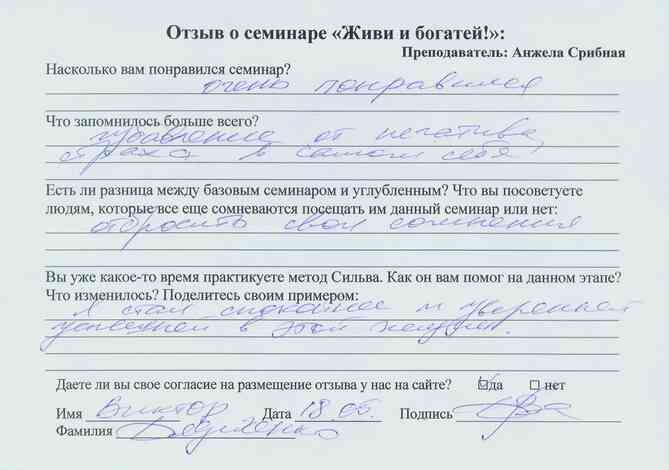 Отзыв о семинаре «Живи и богатей!»:
Преподаватель: Анжела Срибная
Насколько вам понравился семинар?
очень понравился
Что запомнилось больше всего?
избавление от негатива,
страха в самом себе
Есть ли разница между базовым семинаром и углубленным? Что вы посоветуете
людям, которые все еще сомневаются посещать им данный семинар или нет:
отбросить свои сомнения
Вы уже какое-то время практикуете метод Сильва. Как он вам помог на данном этапе?
Что изменилось? Поделитесь своим примером:
Я стал спокойнее и уверенней
в этой жизни.
Даете ли вы свое согласие на размещение отзыва у нас на сайте? да нет
Имя Виктор Дата 18 05. Подпись
Фамилия